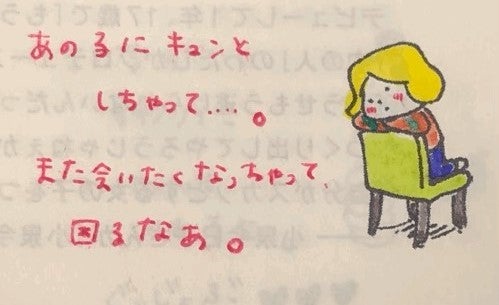 あの子にキュンと
しちゃって....。
また会いたくなっちゃって、
困るなあ。